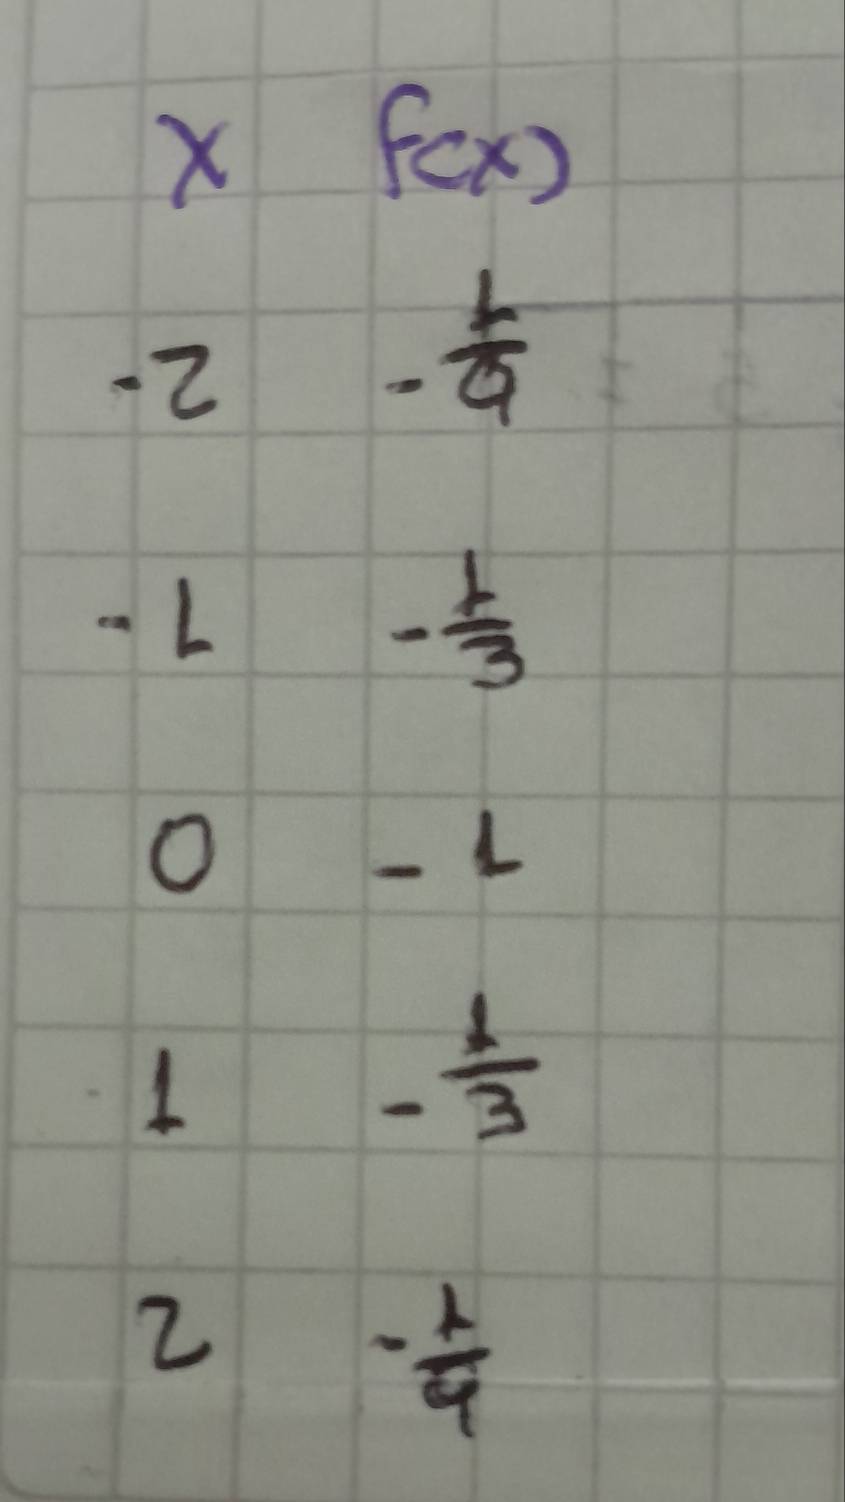 x f(x)
-2 -1/9
-1 -1/3
0 -1
1 -1/3
2 -1/9